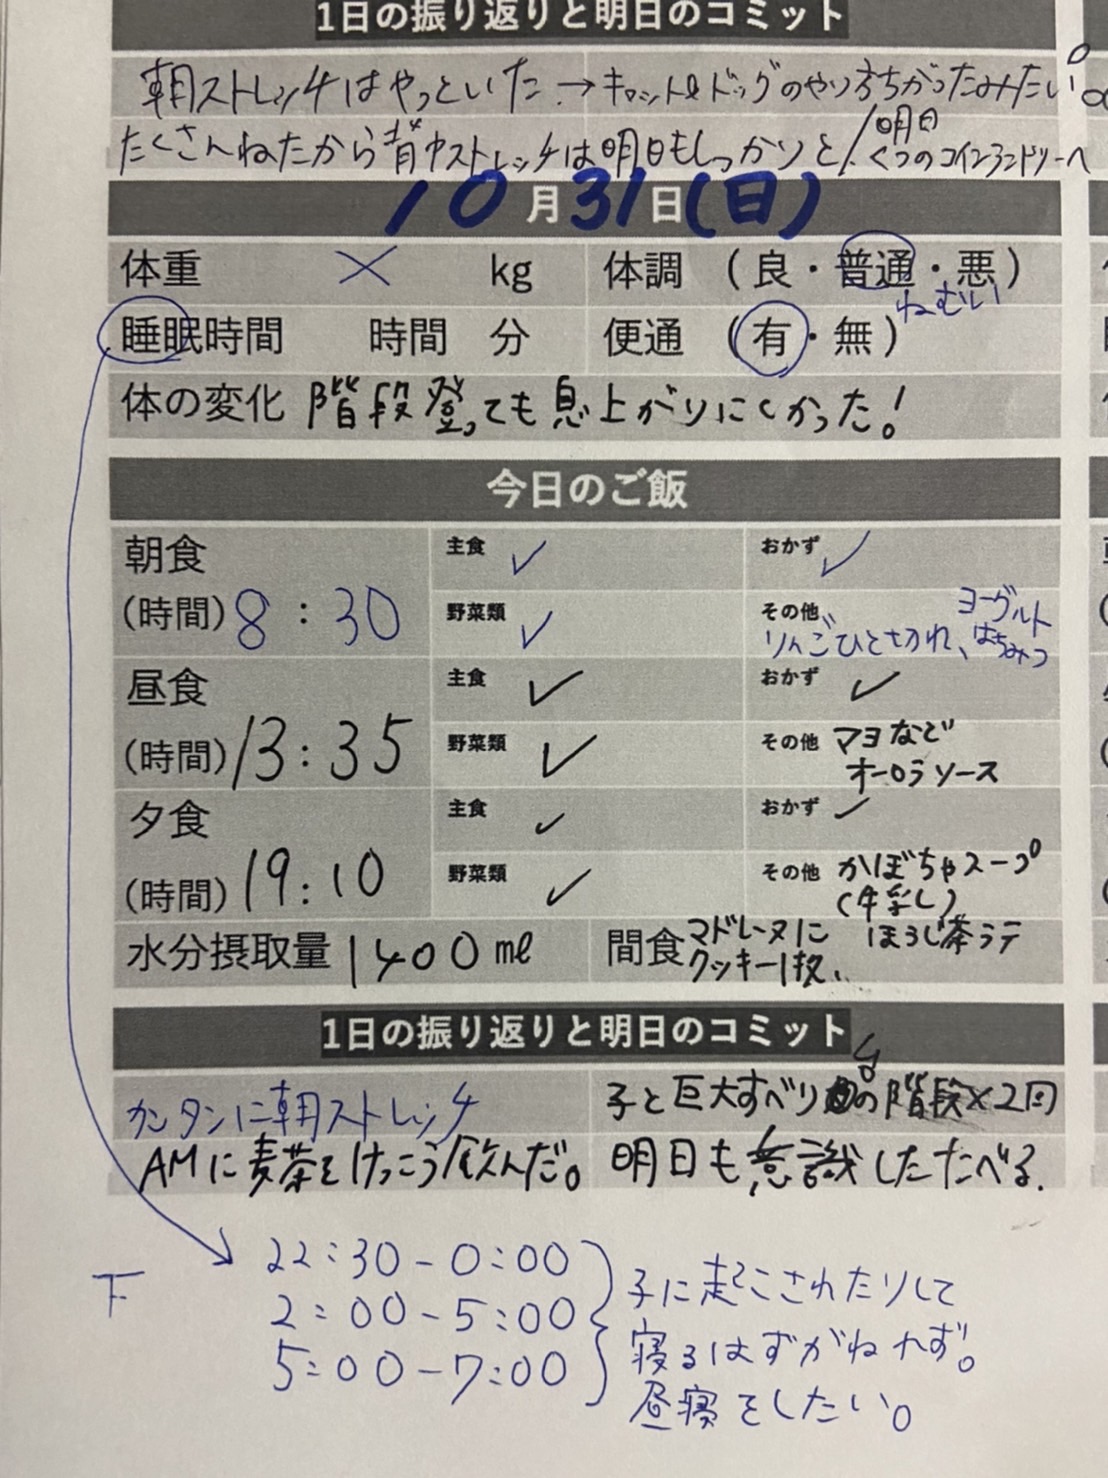 1日の振り返りと明日のコミット
朝ストレッチはやっといた→キャット&ドッグのやり方ちがったみたい。
たくさんねたから背中ストレッチは明日もしっかりと!/明日くつのコインランドリーへ
10月31日(日)
体重 × kg 体調 (良・普通・悪)
ねむい
睡眠時間 時間 分 便通 (有・無)
体の変化 階段登っても息上がりにくかった!
今日のご飯
朝食 主食 ✓ おかず ✓
(時間) 8:30 野菜類 ✓ その他 りんごひと切れ、ヨーグルト はちみつ
昼食 主食 ✓ おかず ✓
(時間) 13:35 野菜類 ✓ その他 マヨなど
オーロラソース
夕食 主食 ✓ おかず ✓
(時間) 19:10 野菜類 ✓ その他 かぼちゃスープ
(牛乳し)
水分摂取量 1400㎖ 間食 マドレーヌに ほうじ茶ラテ
クッキー1枚、
1日の振り返りと明日のコミット
カンタンに朝ストレッチ 子と巨大すべり台の階段×2回
AMに麦茶をけっこう飲んだ。 明日も意識したたべる.
下 22:30-0:00 子に起こされたりして
2:00-5:00 寝るはずがねれず。
5:00-7:00 昼寝をしたい。